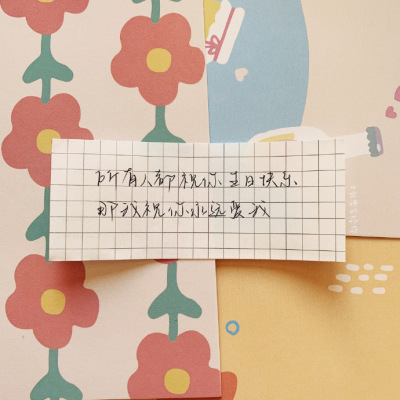 所有人都祝你生日快乐
那我祝你永远爱我